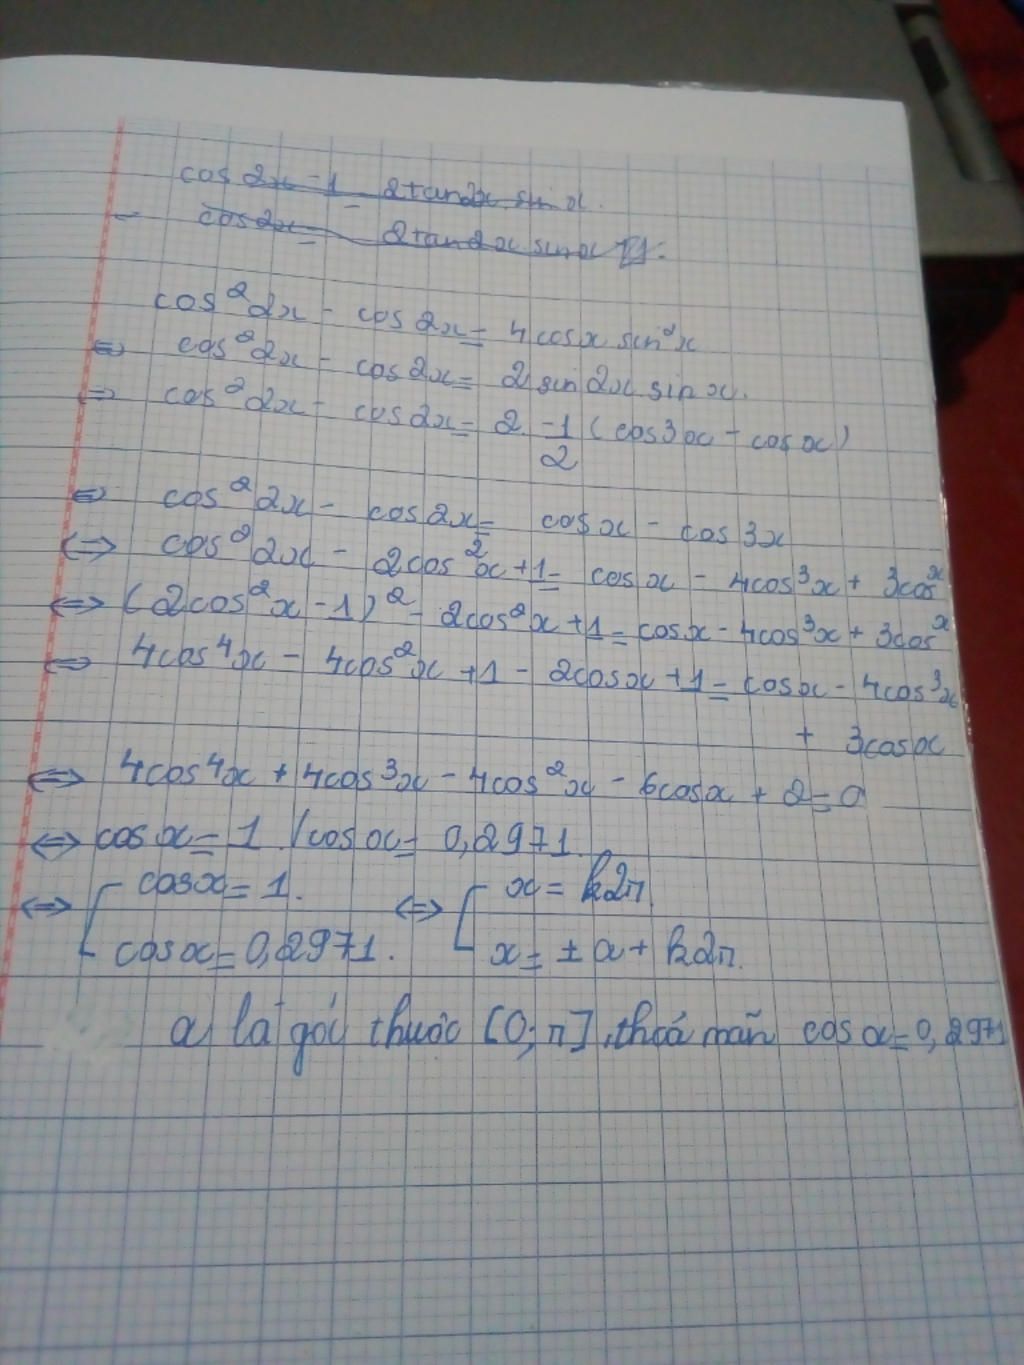 cos 2x - 1 = 2tan2x sin x.
- cos2x = 2tan2x sinx
cos²2x - cos2x = 4cosx sin²x
⇔ cos²2x - cos2x = 2sin2x sinx.
⇒ cos²2x - cos2x = 2. -1/2 (cos3x - cosx)
⇔ cos²2x - cos2x = cosx - cos3x
⇔ cos²2x - 2cos²x + 1 = cosx - 4cos³x + 3cosx
⇔ (2cos²x - 1)² - 2cos²x + 1 = cosx - 4cos³x + 3cosx
⇔ 4cos⁴x - 4cos²x + 1 - 2cosx + 1 = cosx - 4cos³x
+ 3cosx
⇔ 4cos⁴x + 4cos³x - 4cos²x - 6cosx + 2 = 0
⇔ cosx = 1. / cosx = 0,2971
⇔ [ cosx = 1. ⇔ [ x = k2π
cosx = 0,2971. x = ± α + k2π.
α là góc thuộc [0; π], thoả mãn cos α = 0,2971